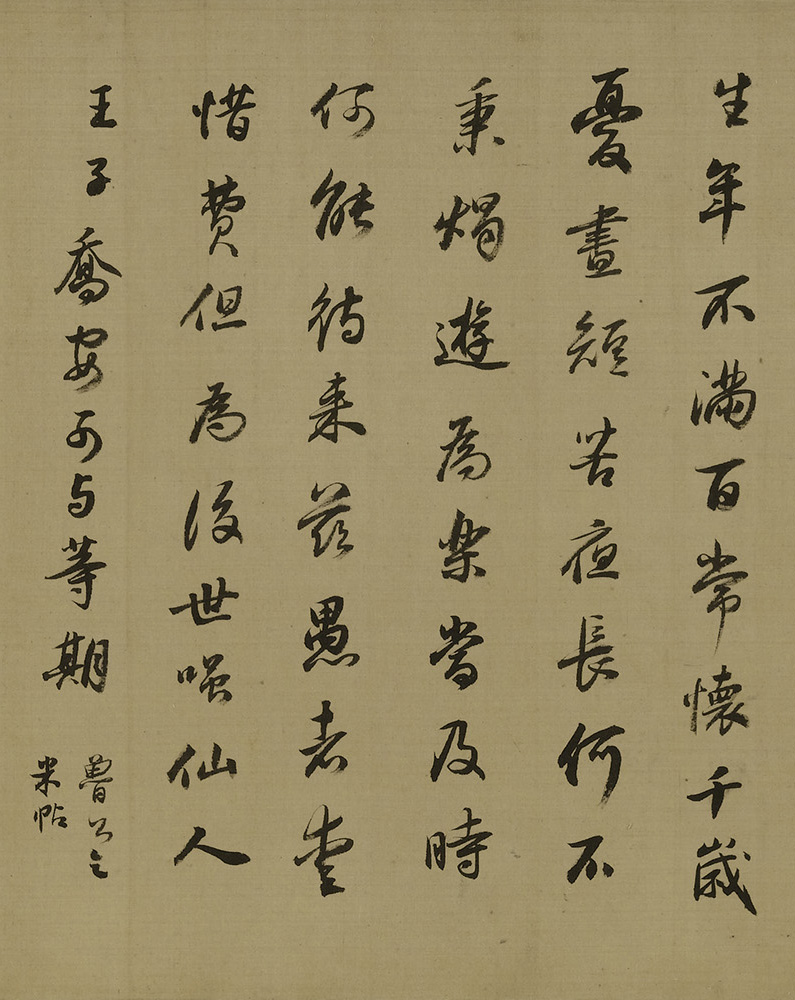 生年不滿百常懷千歲
憂晝短苦夜長何不
秉燭遊為樂當及時
何能待来茲愚者愛
惜費但為後世嗤仙人
王子喬安可与等期
魯公乞
米帖